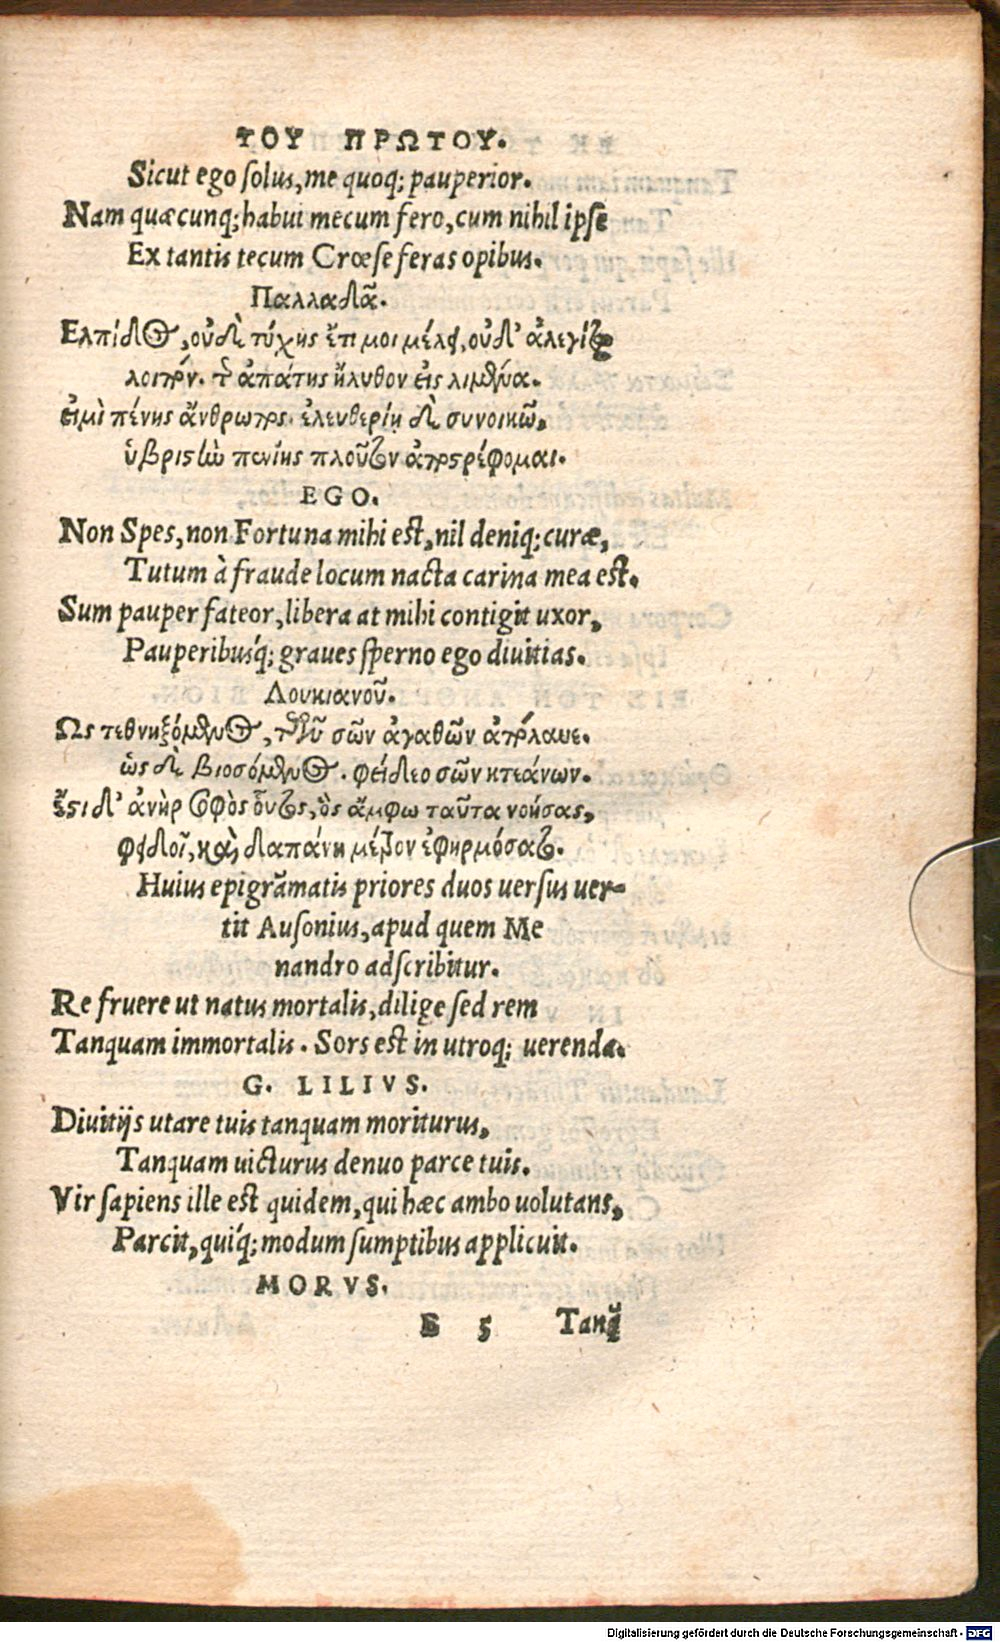 ΤΟΥ ΠΡΩΤΟΥ.
Sicut ego ſolus, me quoq; pauperior.
Nam quæcunq; habui mecum fero, cum nihil ipſe
Ex tantis tecum Crœſe feras opibus.
Παλλαδᾶ.
Ελπίδος, οὐδὲ τύχης ἔτι μοι μέλει, οὐδ' ἀλεγίζω
λοιπόν. τῆς ἀπάτης ἤλυθον εἰς λιμένα.
εἰμὶ πένης ἄνθρωπος. ἐλευθερίῃ δὲ συνοικῶ,
ὑβριστὼ πενίης πλοῦτον ἀποστρέφομαι.
EGO.
Non Spes, non Fortuna mihi est, nil deniq; curæ,
Tutum à fraude locum nacta carina mea est.
Sum pauper fateor, libera at mihi contigit uxor,
Pauperibusq́; graues sperno ego diuitias.
Λουκιανοῦ.
Ως τεθνηξόμενος, τῶν σῶν ἀγαθῶν ἀπόλαυε.
ὡς δὲ βιοσόμενος. φείδεο σῶν κτεάνων.
ἔστι δ' ἀνὴρ σοφὸς οὗτος, ὃς ἄμφω ταῦτα νοήσας,
φειδοῖ, καὶ δαπάνῃ μέτρον ἐφηρμόσατο.
Huius epigrãmatis priores duos uersus uer-
tit Auſonius, apud quem Me
nandro adſcribitur.
Re fruere ut natus mortalis, dilige ſed rem
Tanquam immortalis. Sors est in utroq; uerenda.
G. LILIVS.
Diuitijs utare tuis tanquam moriturus,
Tanquam uicturus denuo parce tuis.
Vir ſapiens ille est quidem, qui hæc ambo uolutans,
Parcit, quiq́; modum ſumptibus applicuit.
MORVS.
E 5 Tanq̃
Digitalisierung gefördert durch die Deutsche Forschungsgemeinschaft - DFG